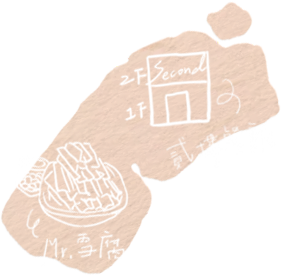 2F Second
1F
貳樓
Mr.雪腐